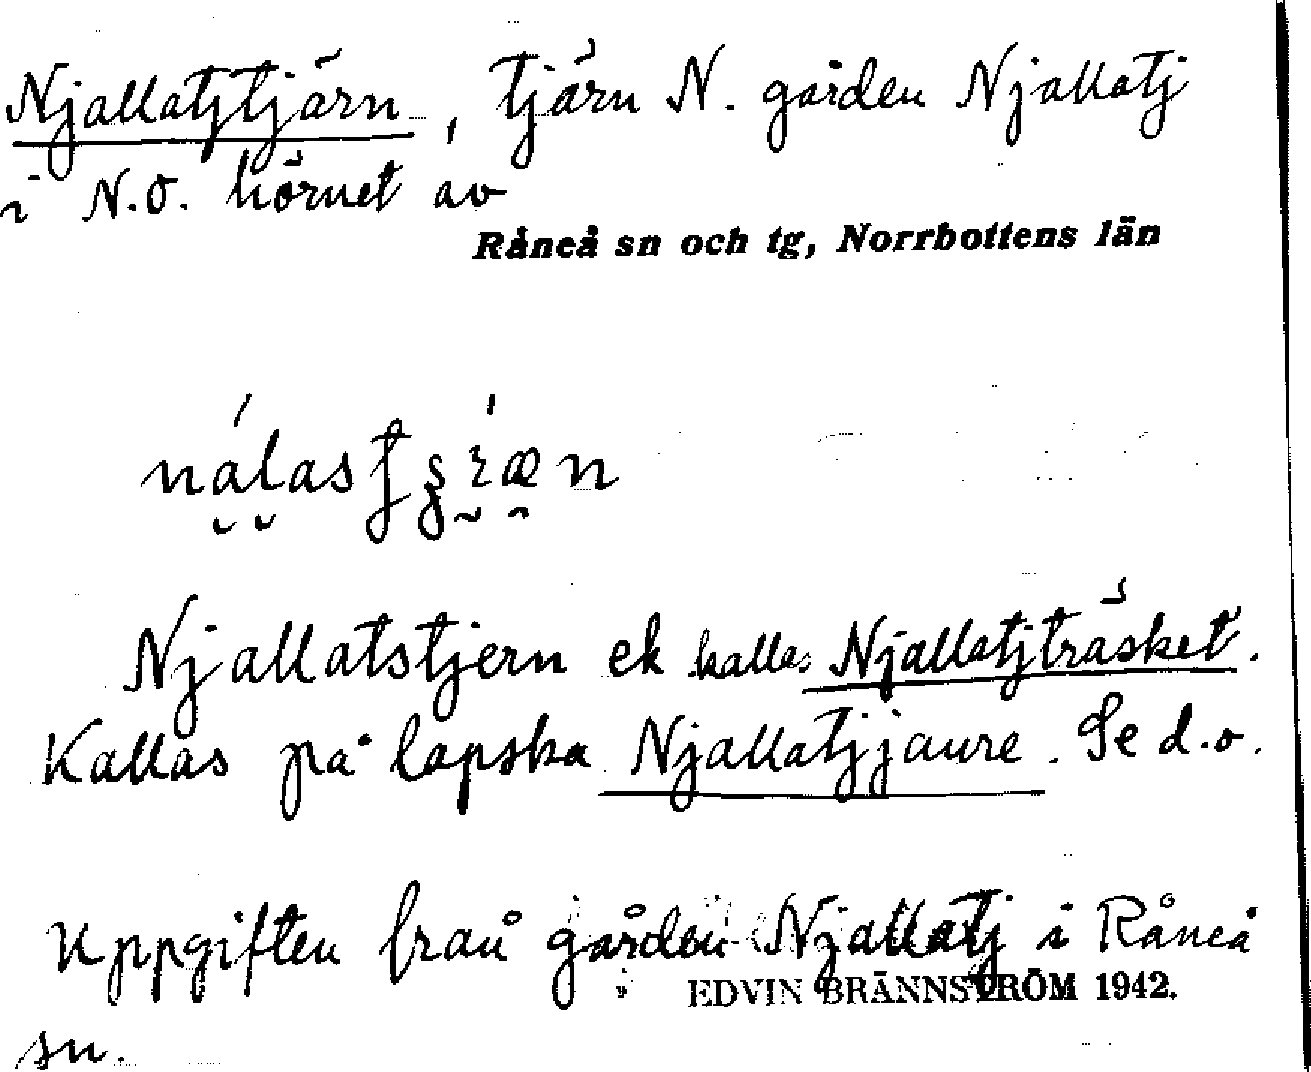 Njallatjtjärn, tjärn N. gården Njallatj
i N.O. hörnet av
Råneå sn och tg, Norrbottens län
Njallatstjern ek kallas Njallatjträsket.
Kallas på lapska Njallatjjaure. Se d.o.
Uppgiften från gården Njallatj i Råneå
EDVIN BRÄNNSTRÖM 1942.
sn.